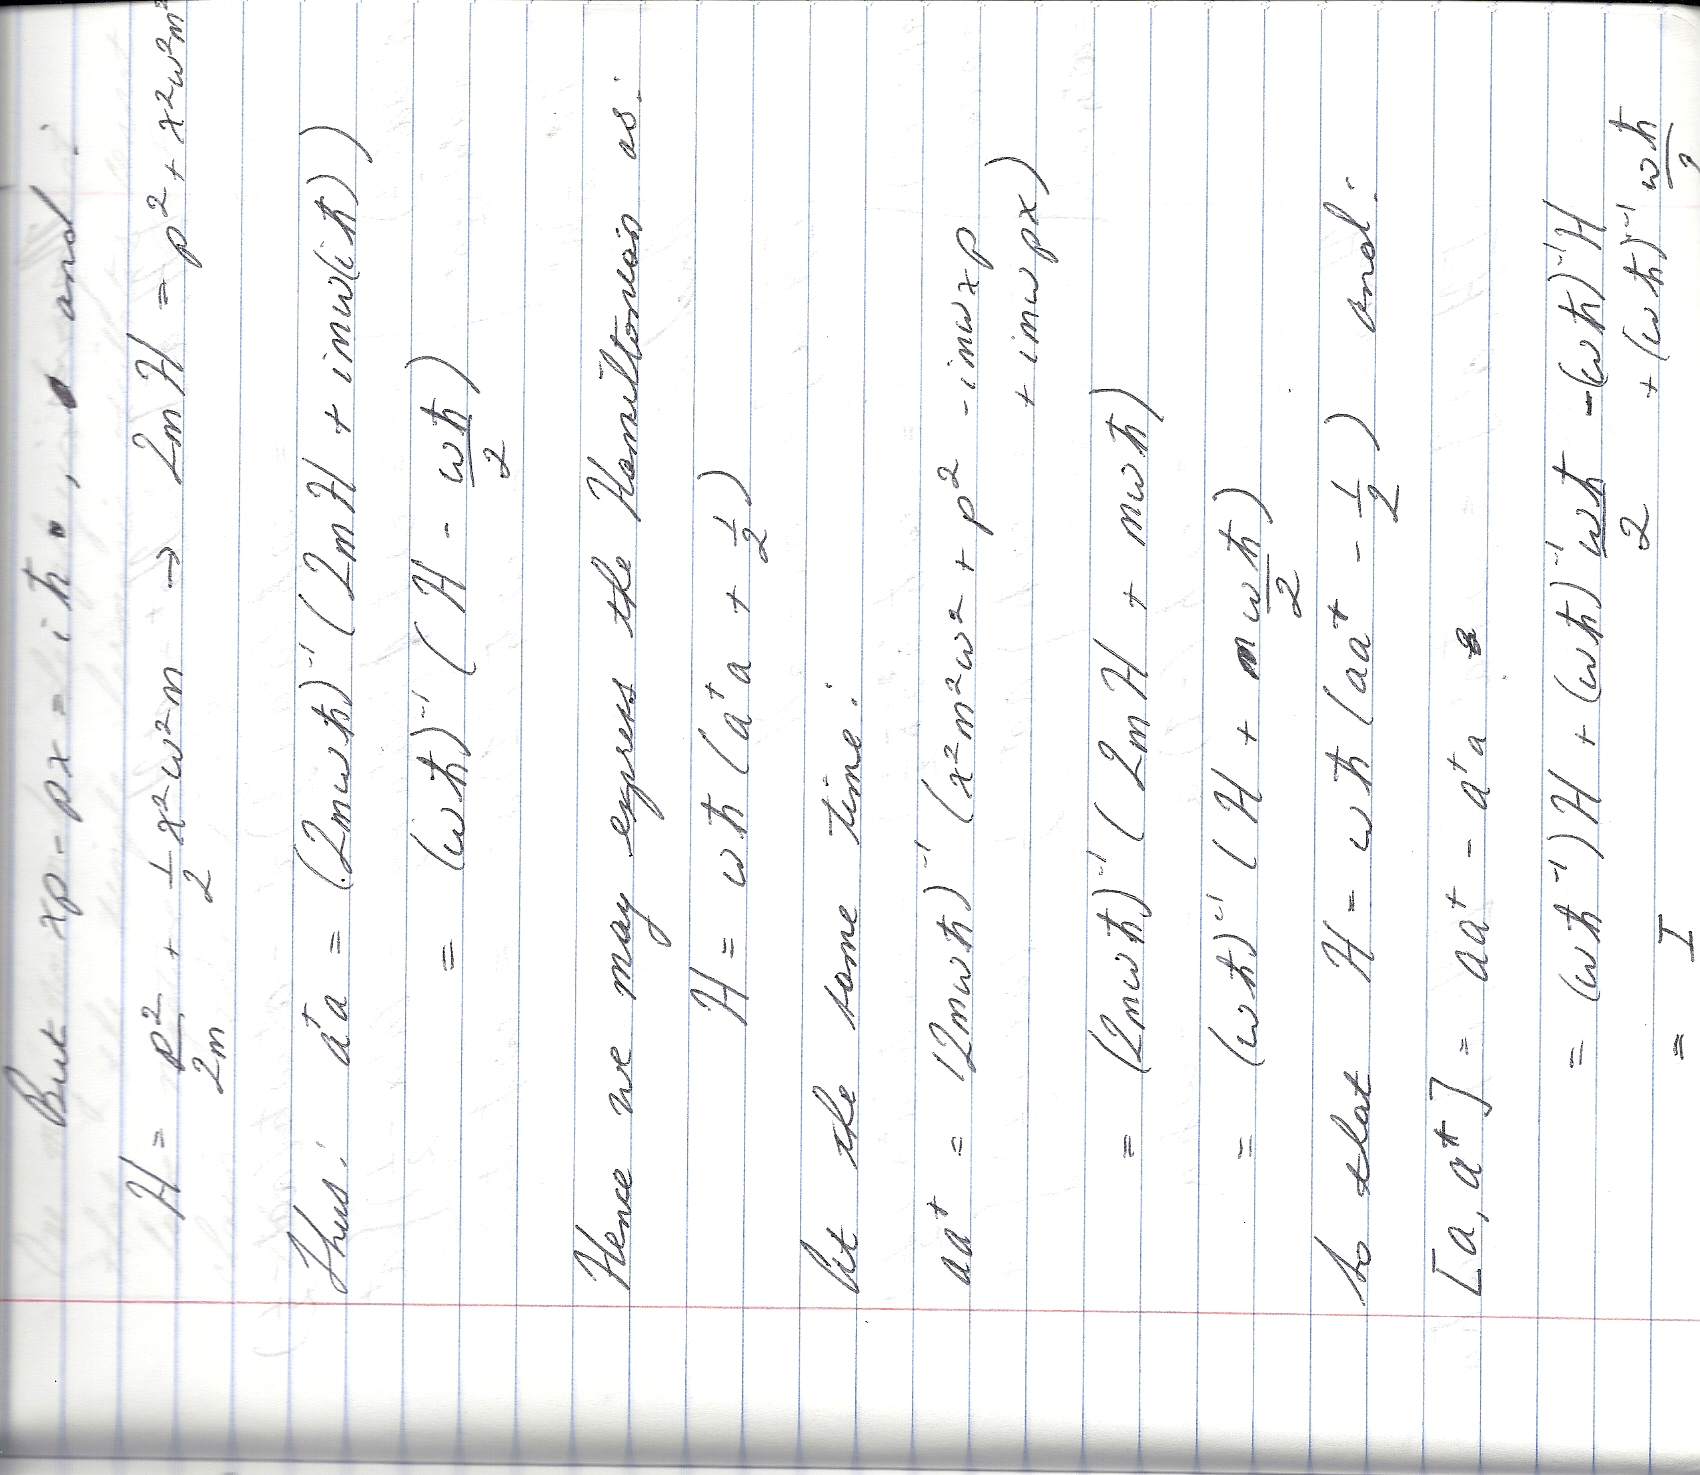 But xp - px = iħ, and
H = p²/2m + 1/2 x²ω²m → 2mH = p² + x²ω²m²
Thus: a†a = (2mωħ)⁻¹ (2mH + imω(iħ))
= (ωħ)⁻¹ (H - ωħ/2)
Hence we may express the Hamiltonian as:
H = ωħ (a†a + 1/2)
At the same time:
aa† = (2mωħ)⁻¹ (x²m²ω² + p² - imωxp
+ imωpx)
= (2mωħ)⁻¹ (2mH + mωħ)
= (ωħ)⁻¹ (H + ωħ/2)
so that H = ωħ (aa† - 1/2) and:
[a, a†] = aa† - a†a
= (ωħ⁻¹)H + (ωħ)⁻¹ ωħ/2 - (ωħ)⁻¹H
+ (ωħ)⁻¹ ωħ/2
= I